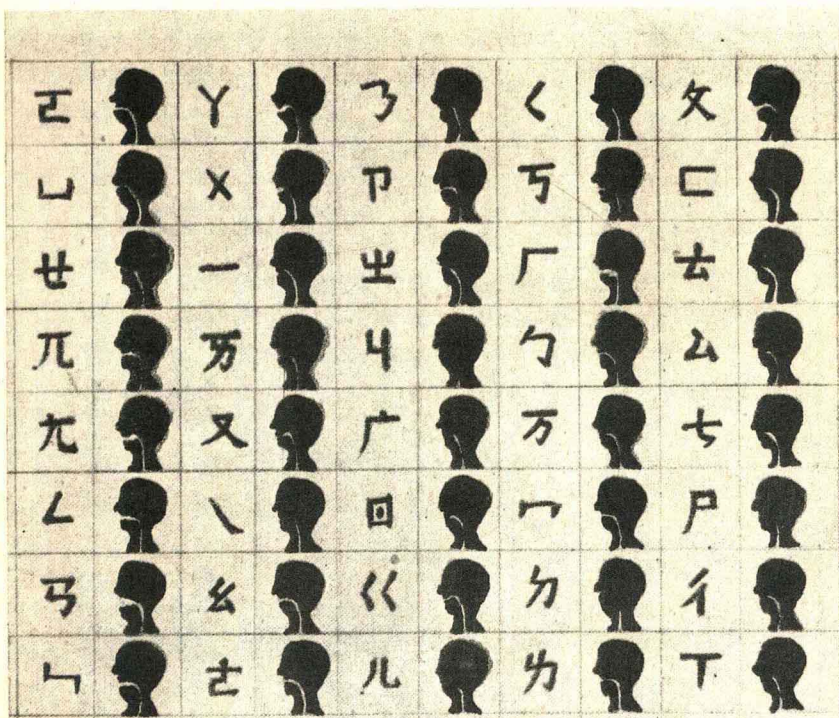 ㄛ ㄚ ㄋ ㄑ ㄆ
ㄩ ㄨ ㄗ ㄎ ㄈ
ㄝ ㄧ ㄓ ㄏ ㄊ
ㄫ ㄞ ㄐ ㄅ ㄙ
ㄤ ㄡ ㄬ ㄪ ㄘ
ㄥ ㄟ ㄖ ㄇ ㄕ
ㄢ ㄠ ㄍ ㄉ ㄔ
ㄣ ㄜ ㄦ ㄌ ㄒ